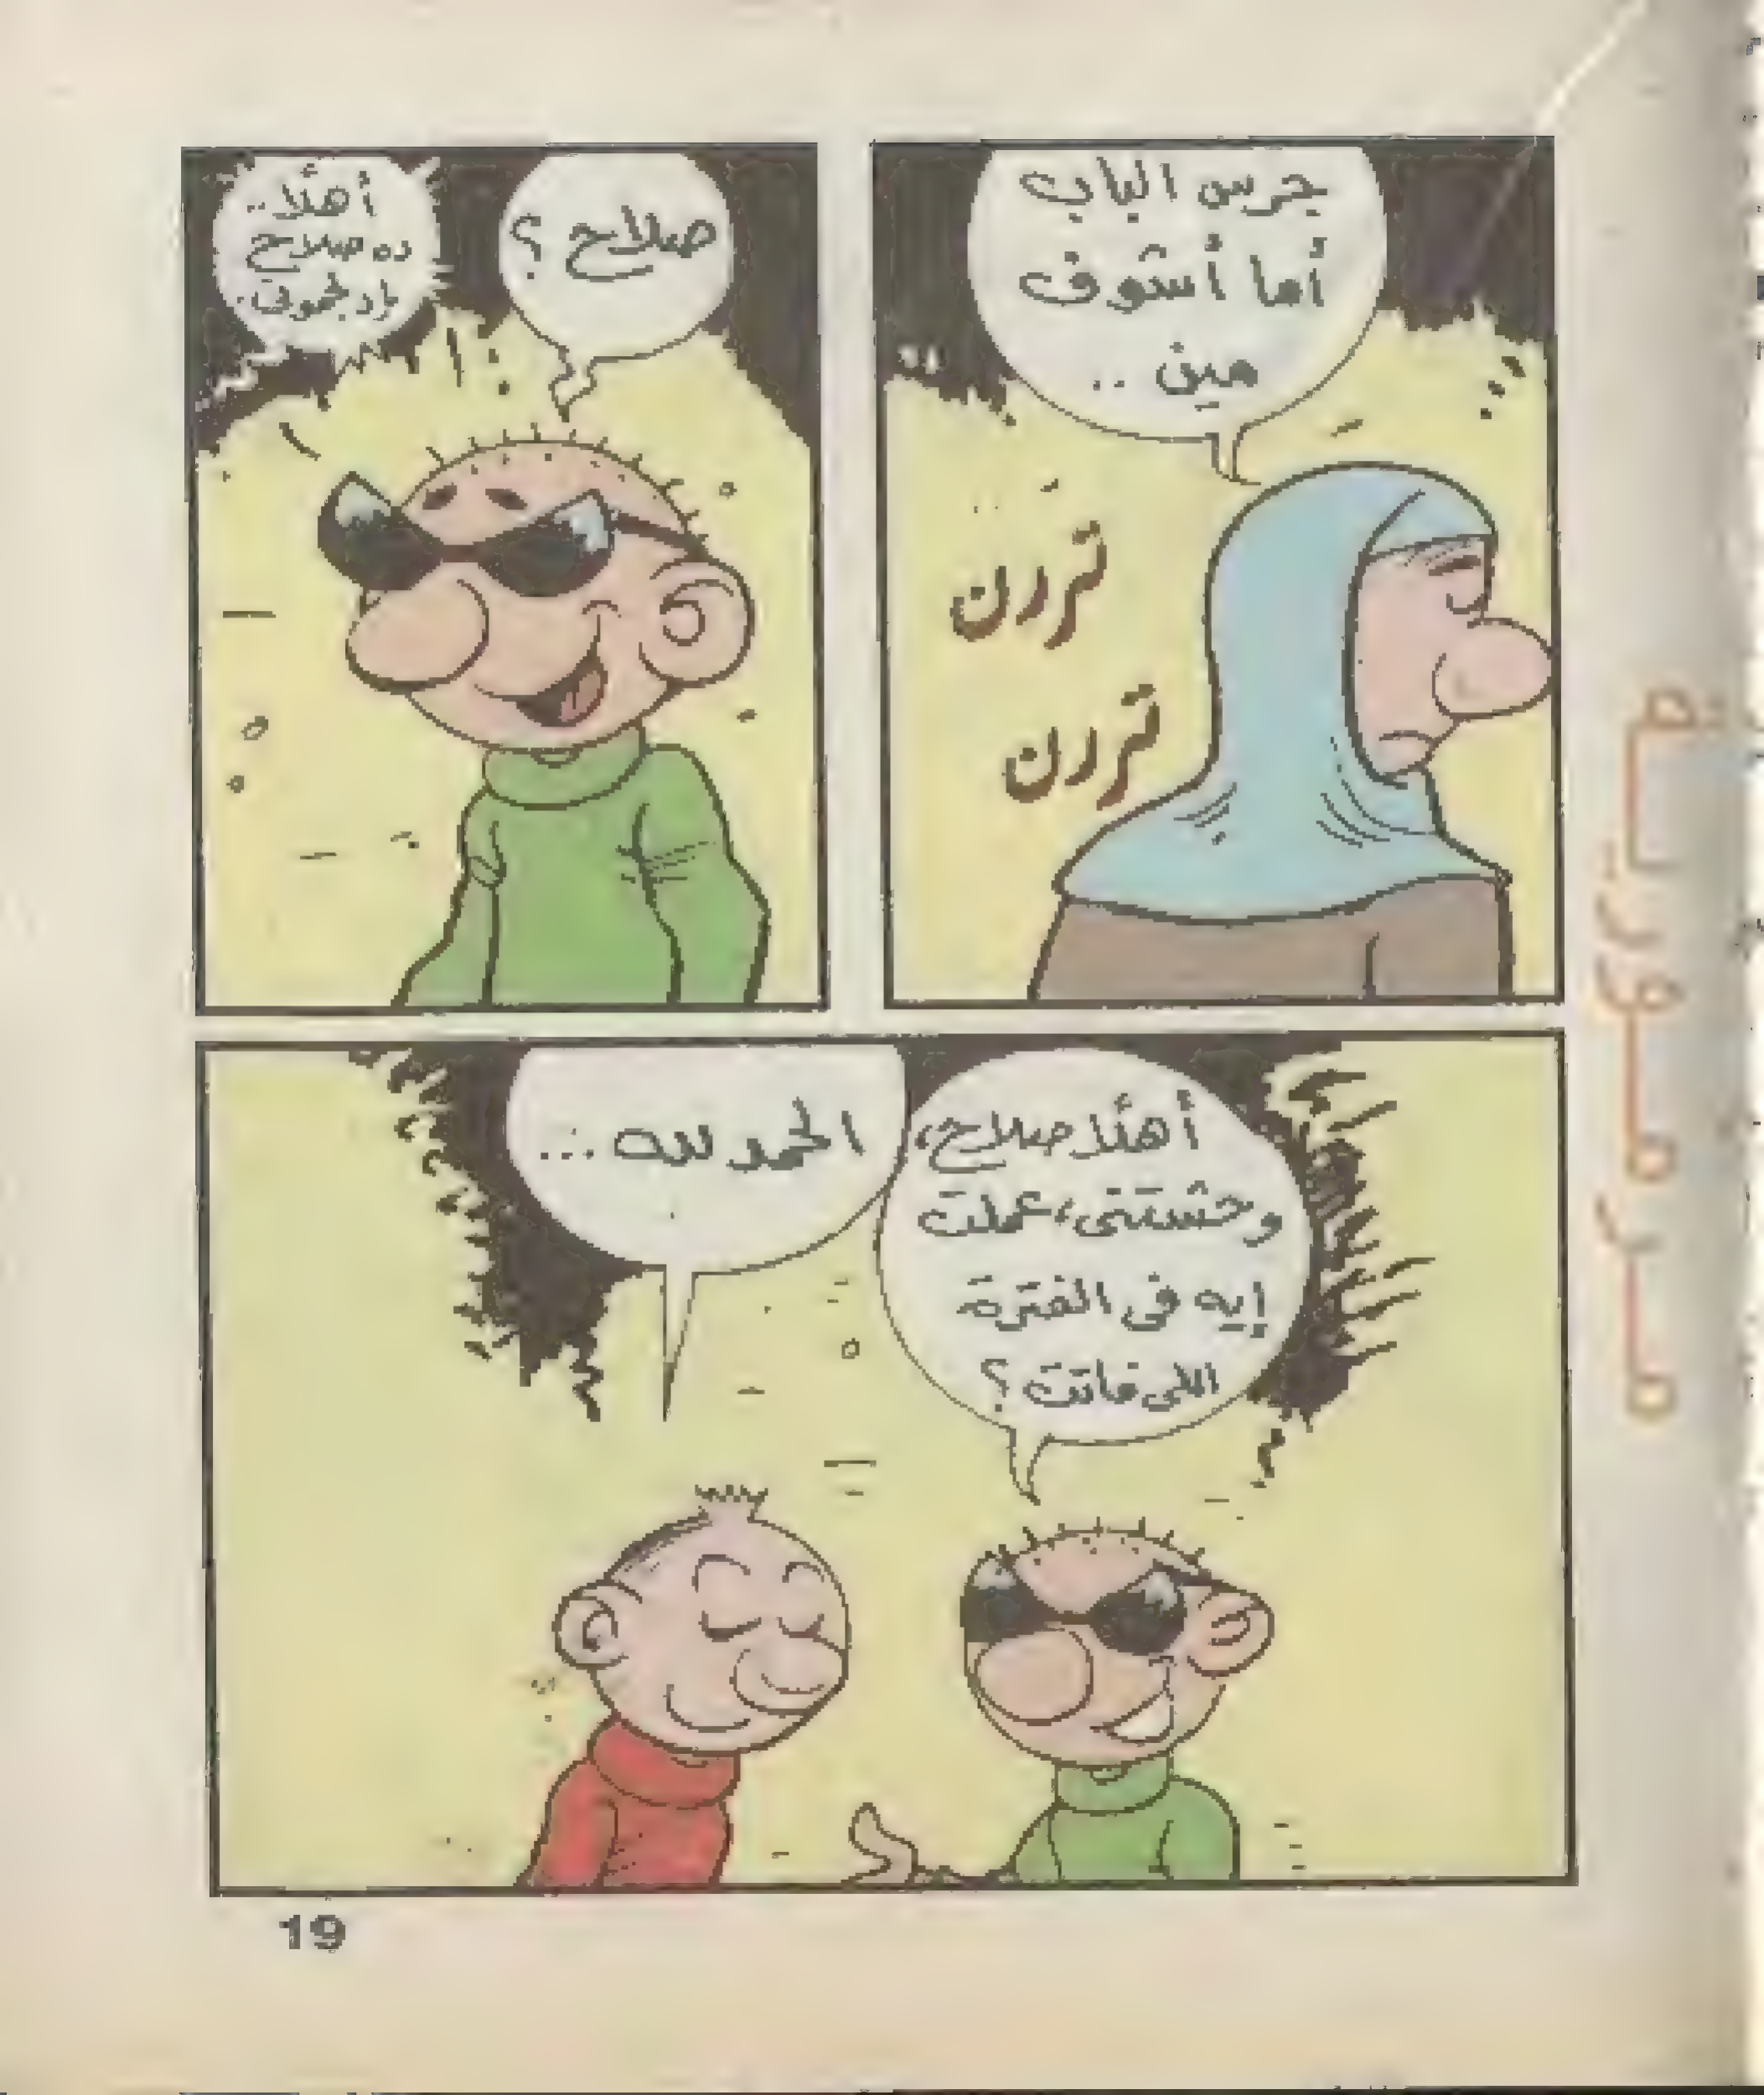 جرس الباب
أما أشوف
مين ..
تررن
تررن
صلاح ؟
أهلًا ..
ده صلاح
أهلًا صلاح،
وحشتنى، عملت
إيه فى الفترة
اللى فاتت ؟
الحمد لله ...
19